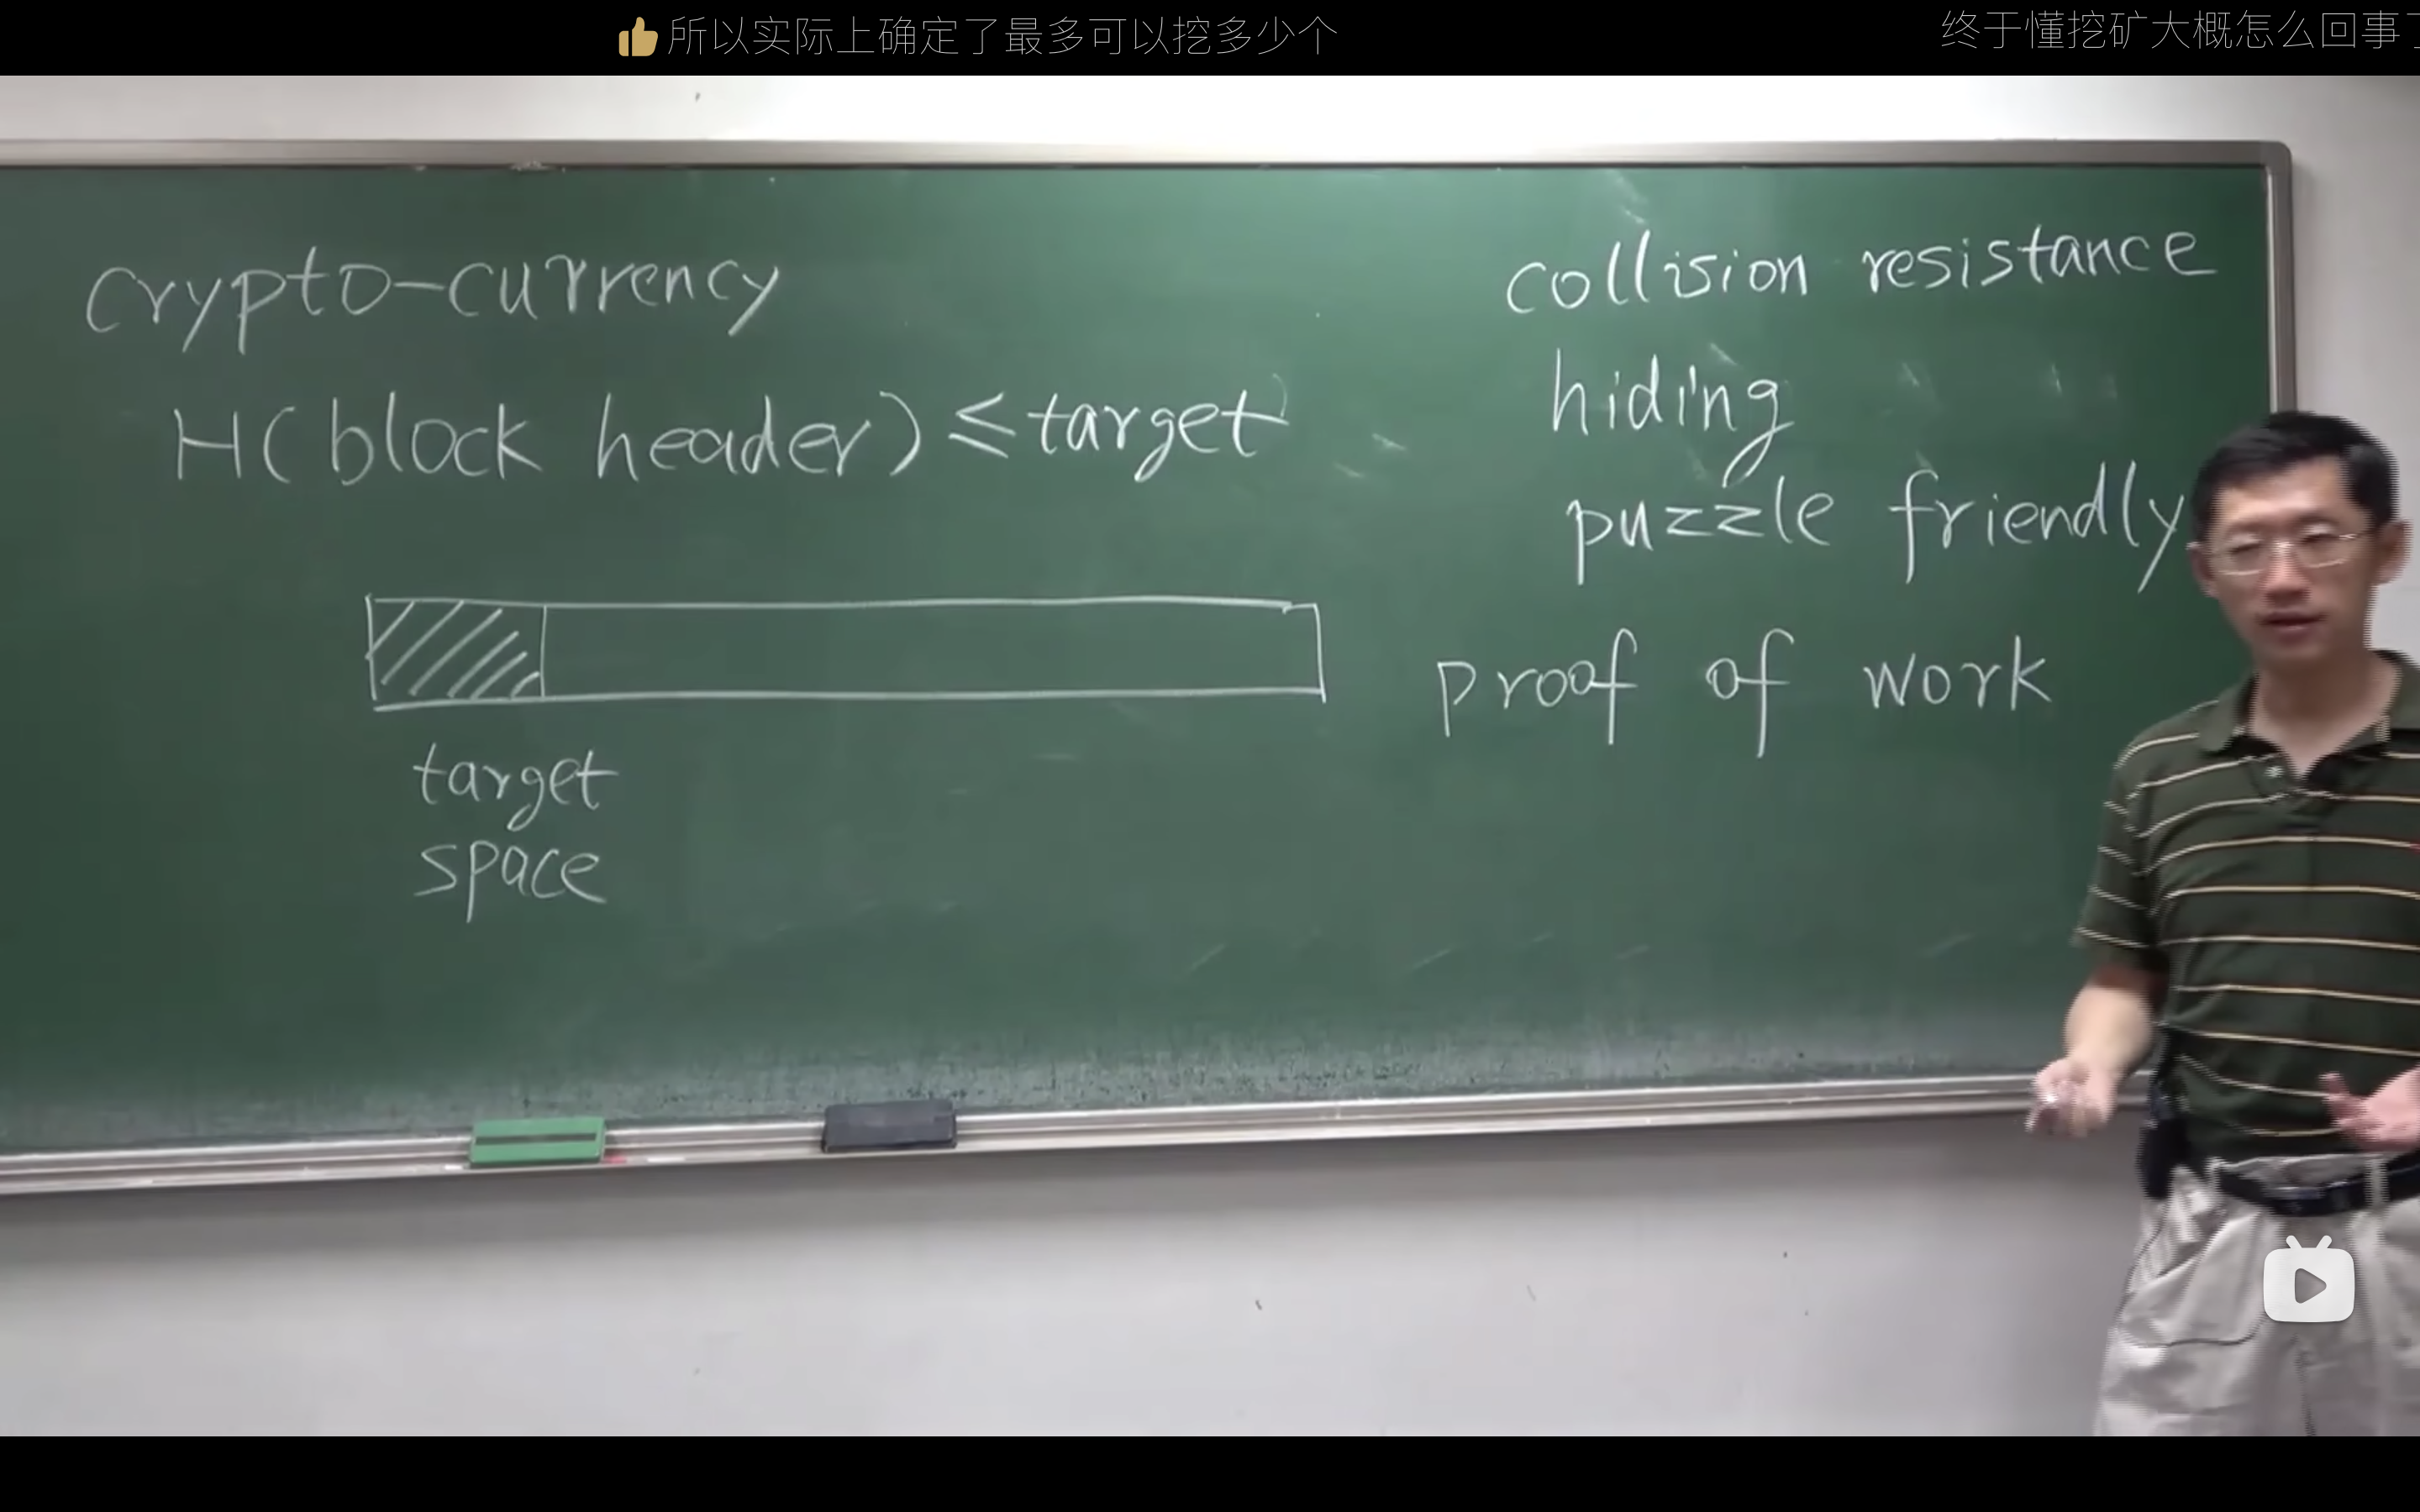 所以实际上确定了最多可以挖多少个
终于懂挖矿大概怎么回事
crypto-currency
H(block header) ≤ target
target
space
collision resistance
hiding
puzzle friendly
proof of work